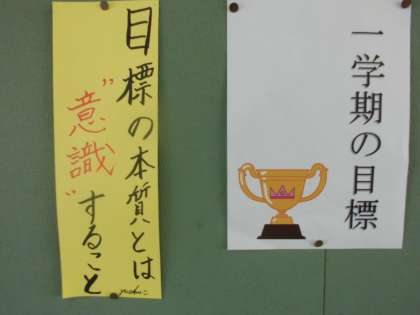 一学期の目標
目標の本質とは
"意識"すること